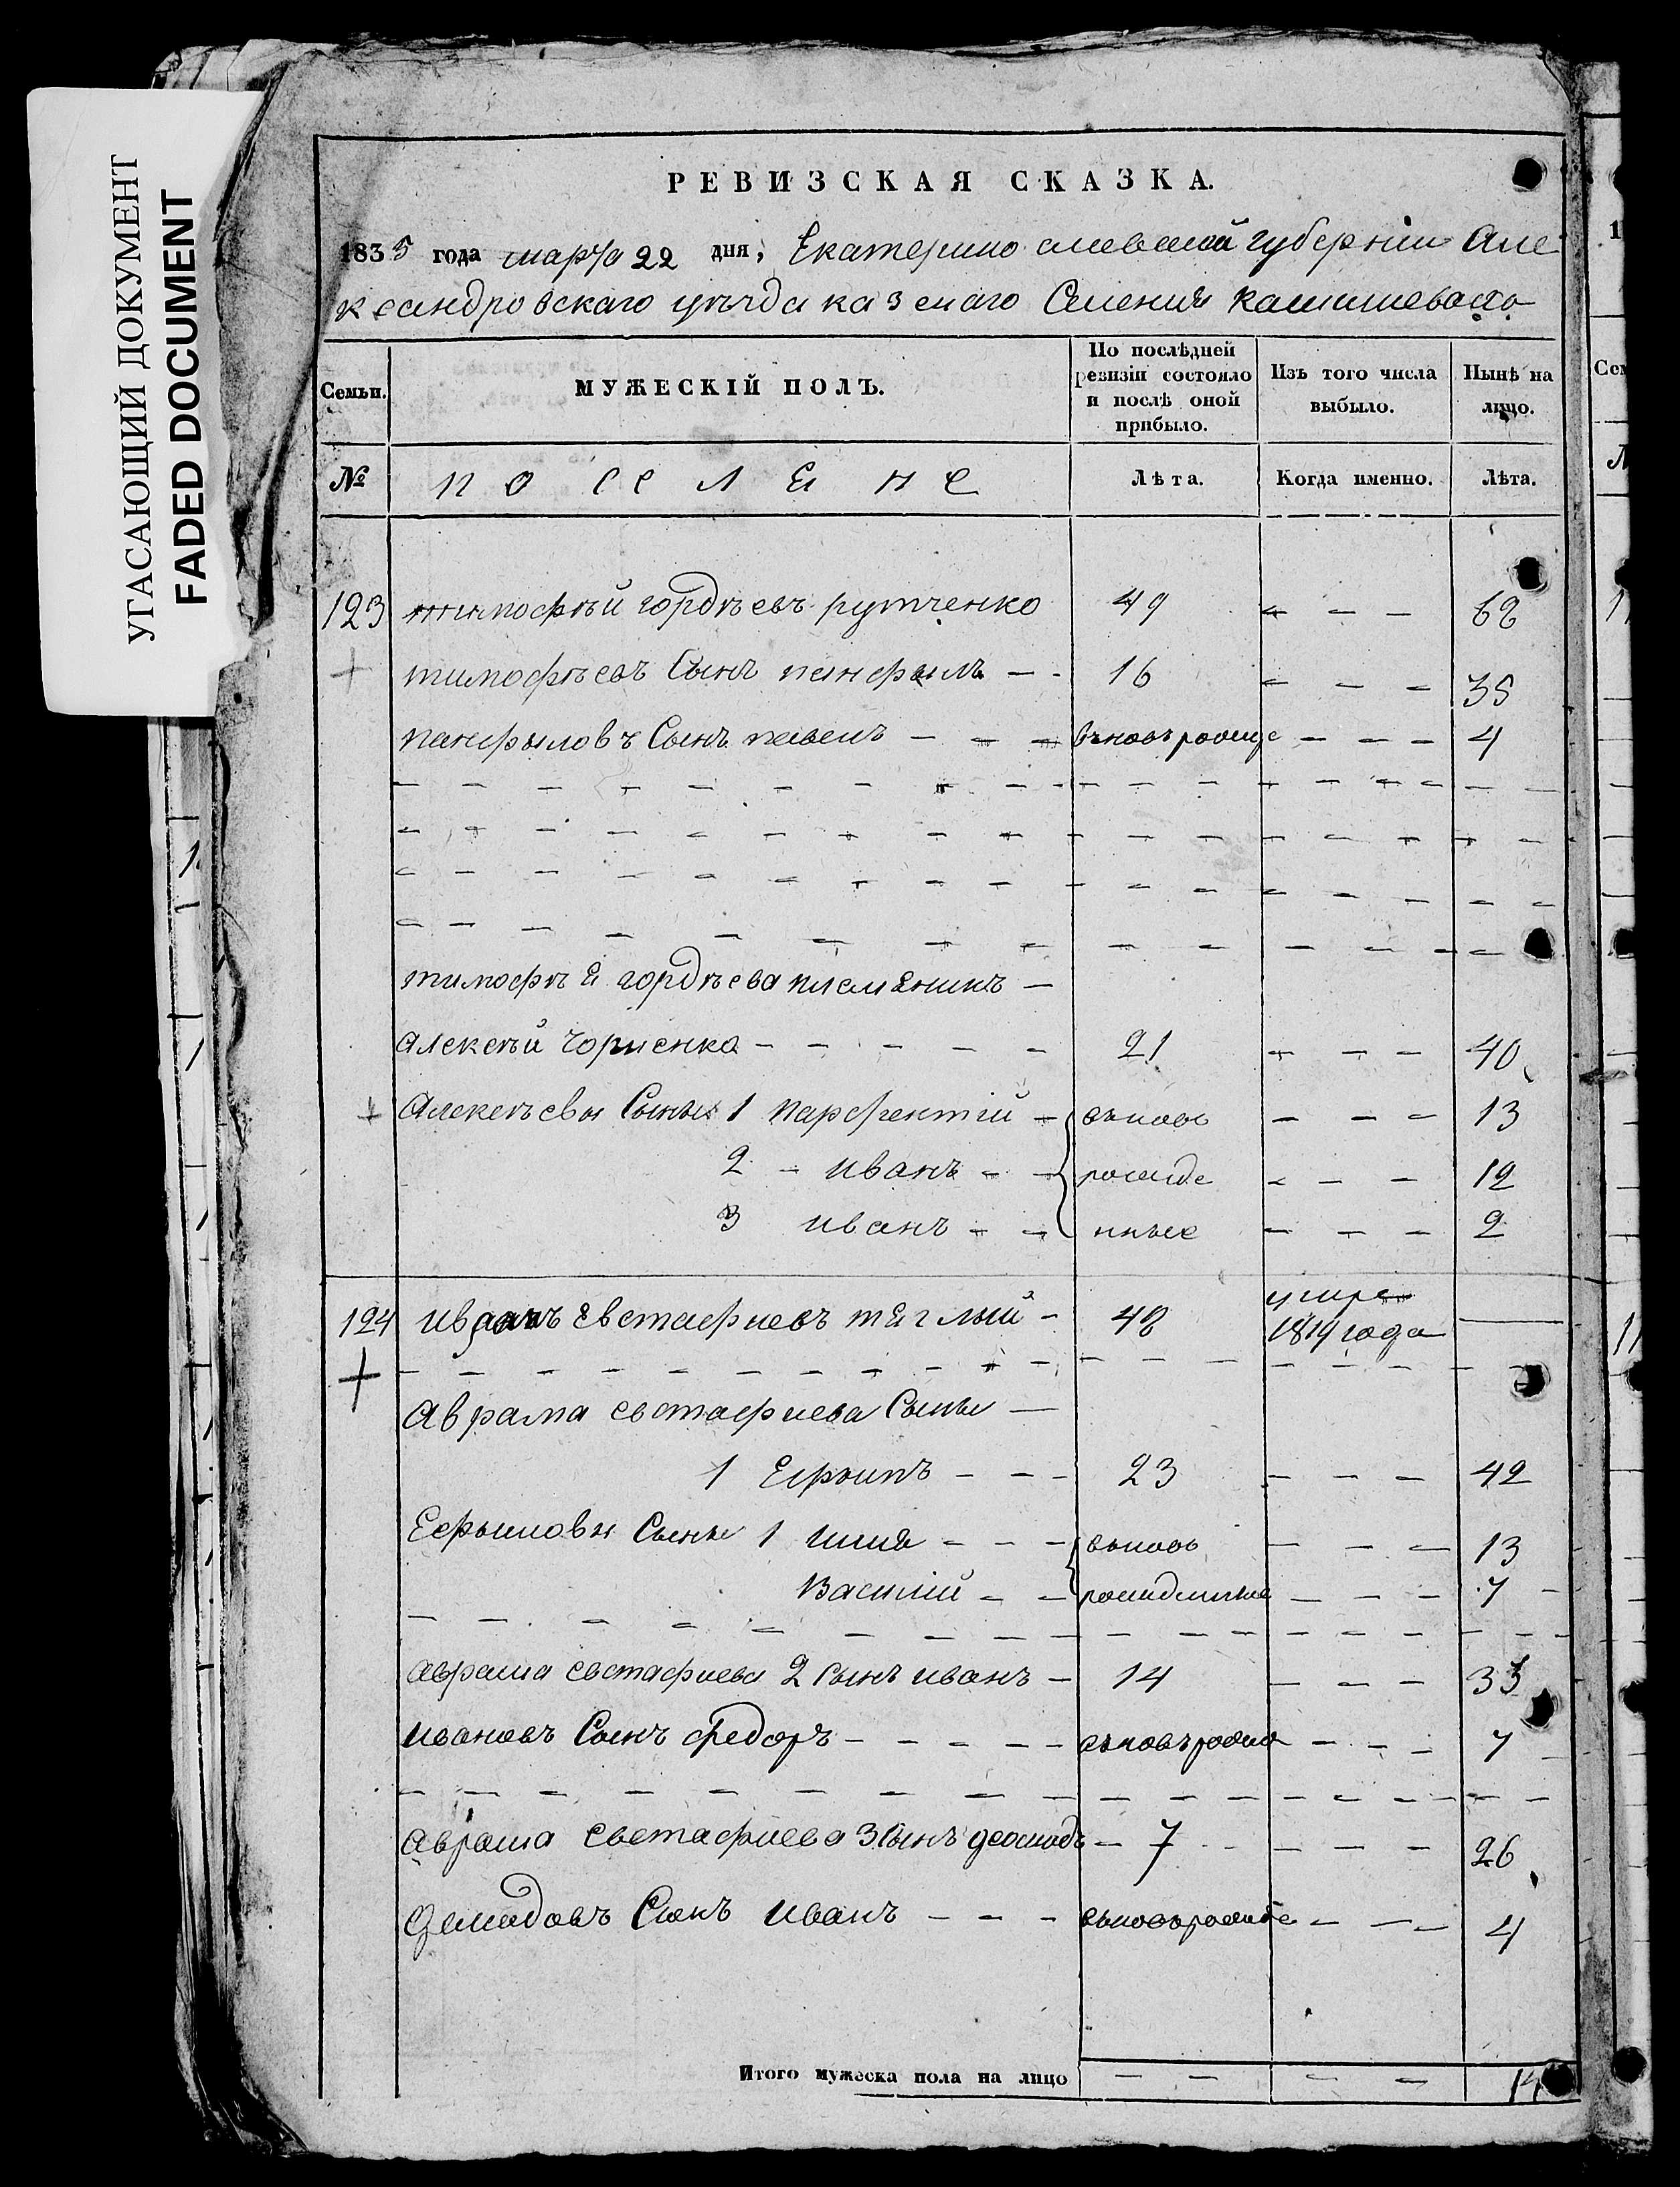 УГАСАЮЩИЙ ДОКУМЕНТ
FADED DOCUMENT
РЕВИЗСКАЯ СКАЗКА.
1835 года марта 22 дня, Екатеринославской губернии Але
ксандровскаго уезда казенаго Селения
Семьи. МУЖЕСКІЙ ПОЛЪ. По послѣдней ревизіи состояло и послѣ оной прибыло. Изъ того числа выбыло. Нынѣ на лицо.
№ поселене Лѣта. Когда именно. Лѣта.
123 тимофѣй гордѣевъ рутченко 49 - - - 68
тимофѣевъ Сынъ панфылъ - - 16 - - - 35
панфыловъ Сынъ павелъ - - - вновъ - - - 4
тимофѣя гордѣева племяникъ -
алексѣй - - - - - 21 - - - 40
алексѣевы Сыны 1 парфентий - вновь - - - 13
2 - иванъ - - рожде - - - 12
3 иванъ - - нные - - - 2
124 евстафиевъ тяглый - 48 умре 1819 года —
аврама евстафиева Сыны —
1 Ефымъ - - - 23 - - - 42
Ефымовы Сыны 1 илия - - - вновь - - - 13
Василий - - рожденные - - - 7
аврама евстафиева 2 сынъ иванъ - 14 - - - 33
ивановъ Сынъ федоръ - - - - - - - - 7
аврама евстафиева 3 Сынъ демидъ - 7 - - - 26
демидовъ Сынъ иванъ - - - - - - 4
Итого мужеска пола на лицо - - - - 14